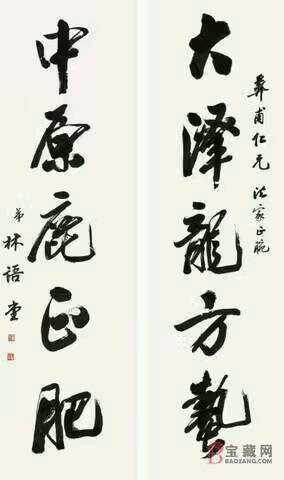 彝甫仁兄法家正腕
大澤龍方蟄
中原鹿正肥
弟林語堂
宝藏网
BAOZANG.COM